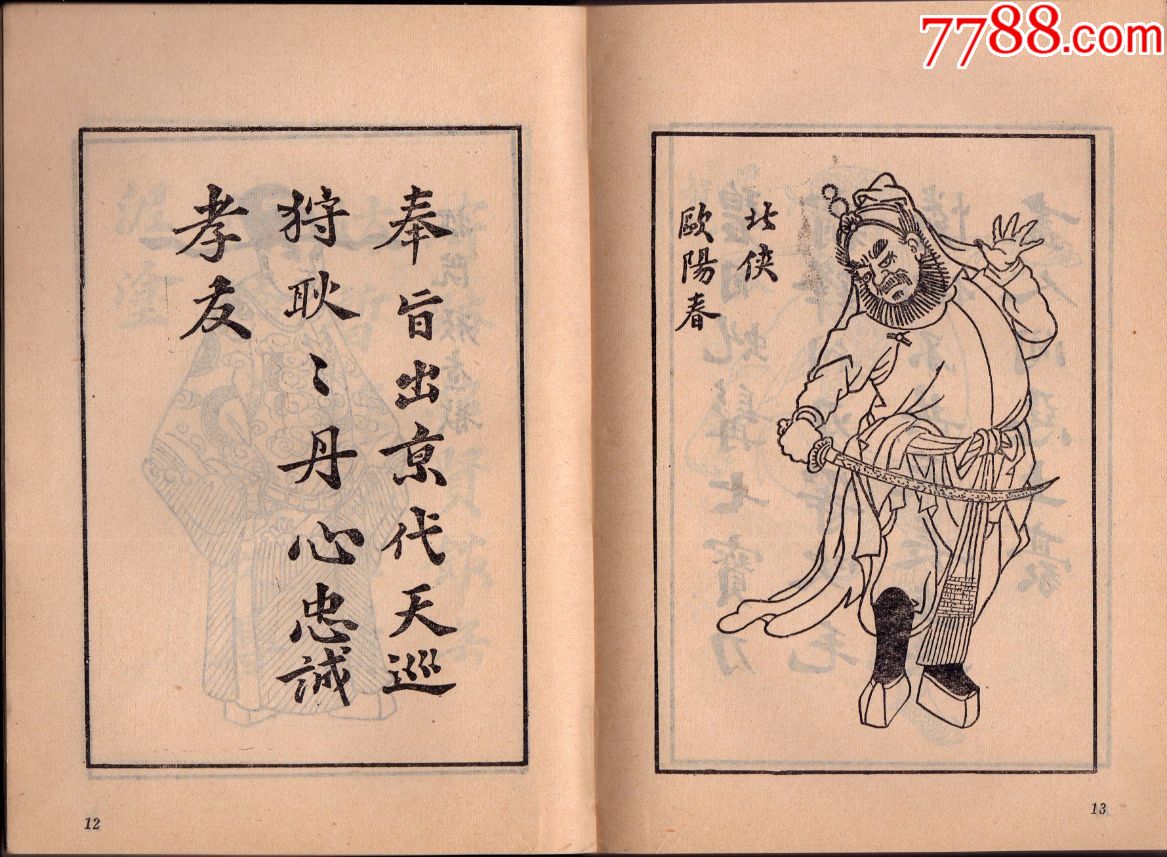 7788.com
奉旨出京代天巡
狩耿〻丹心忠誠
孝友
12
北俠
歐陽春
13